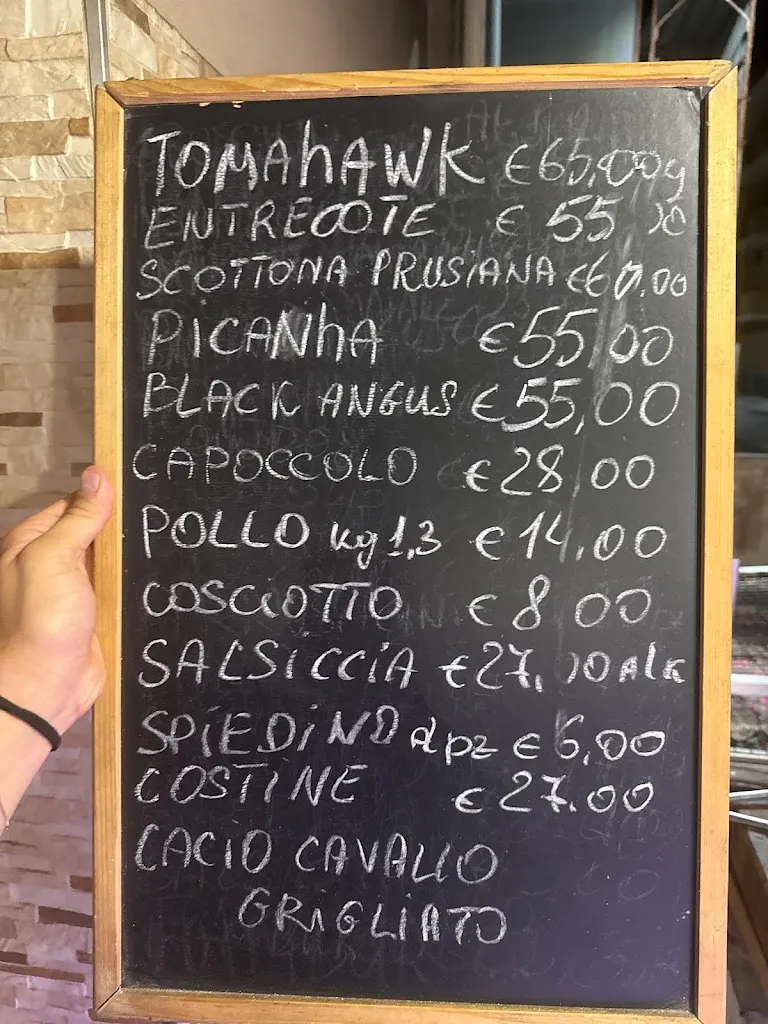 TOMAhAWK €65,00
ENTRECOTE € 55
SCOTTONA PRUSIANA €60.00
PICANhA €55,00
BLACK ANGUS €55,00
CAPOCCOLO €28,00
POLLO kg 1,3 €14,00
COSCIOTTO €8 00
SALSICCIA €27,00 Alk
SPIEDINO pz €6,00
COSTINE €27.00
CACIO CAVALLO
GRIGLIATO